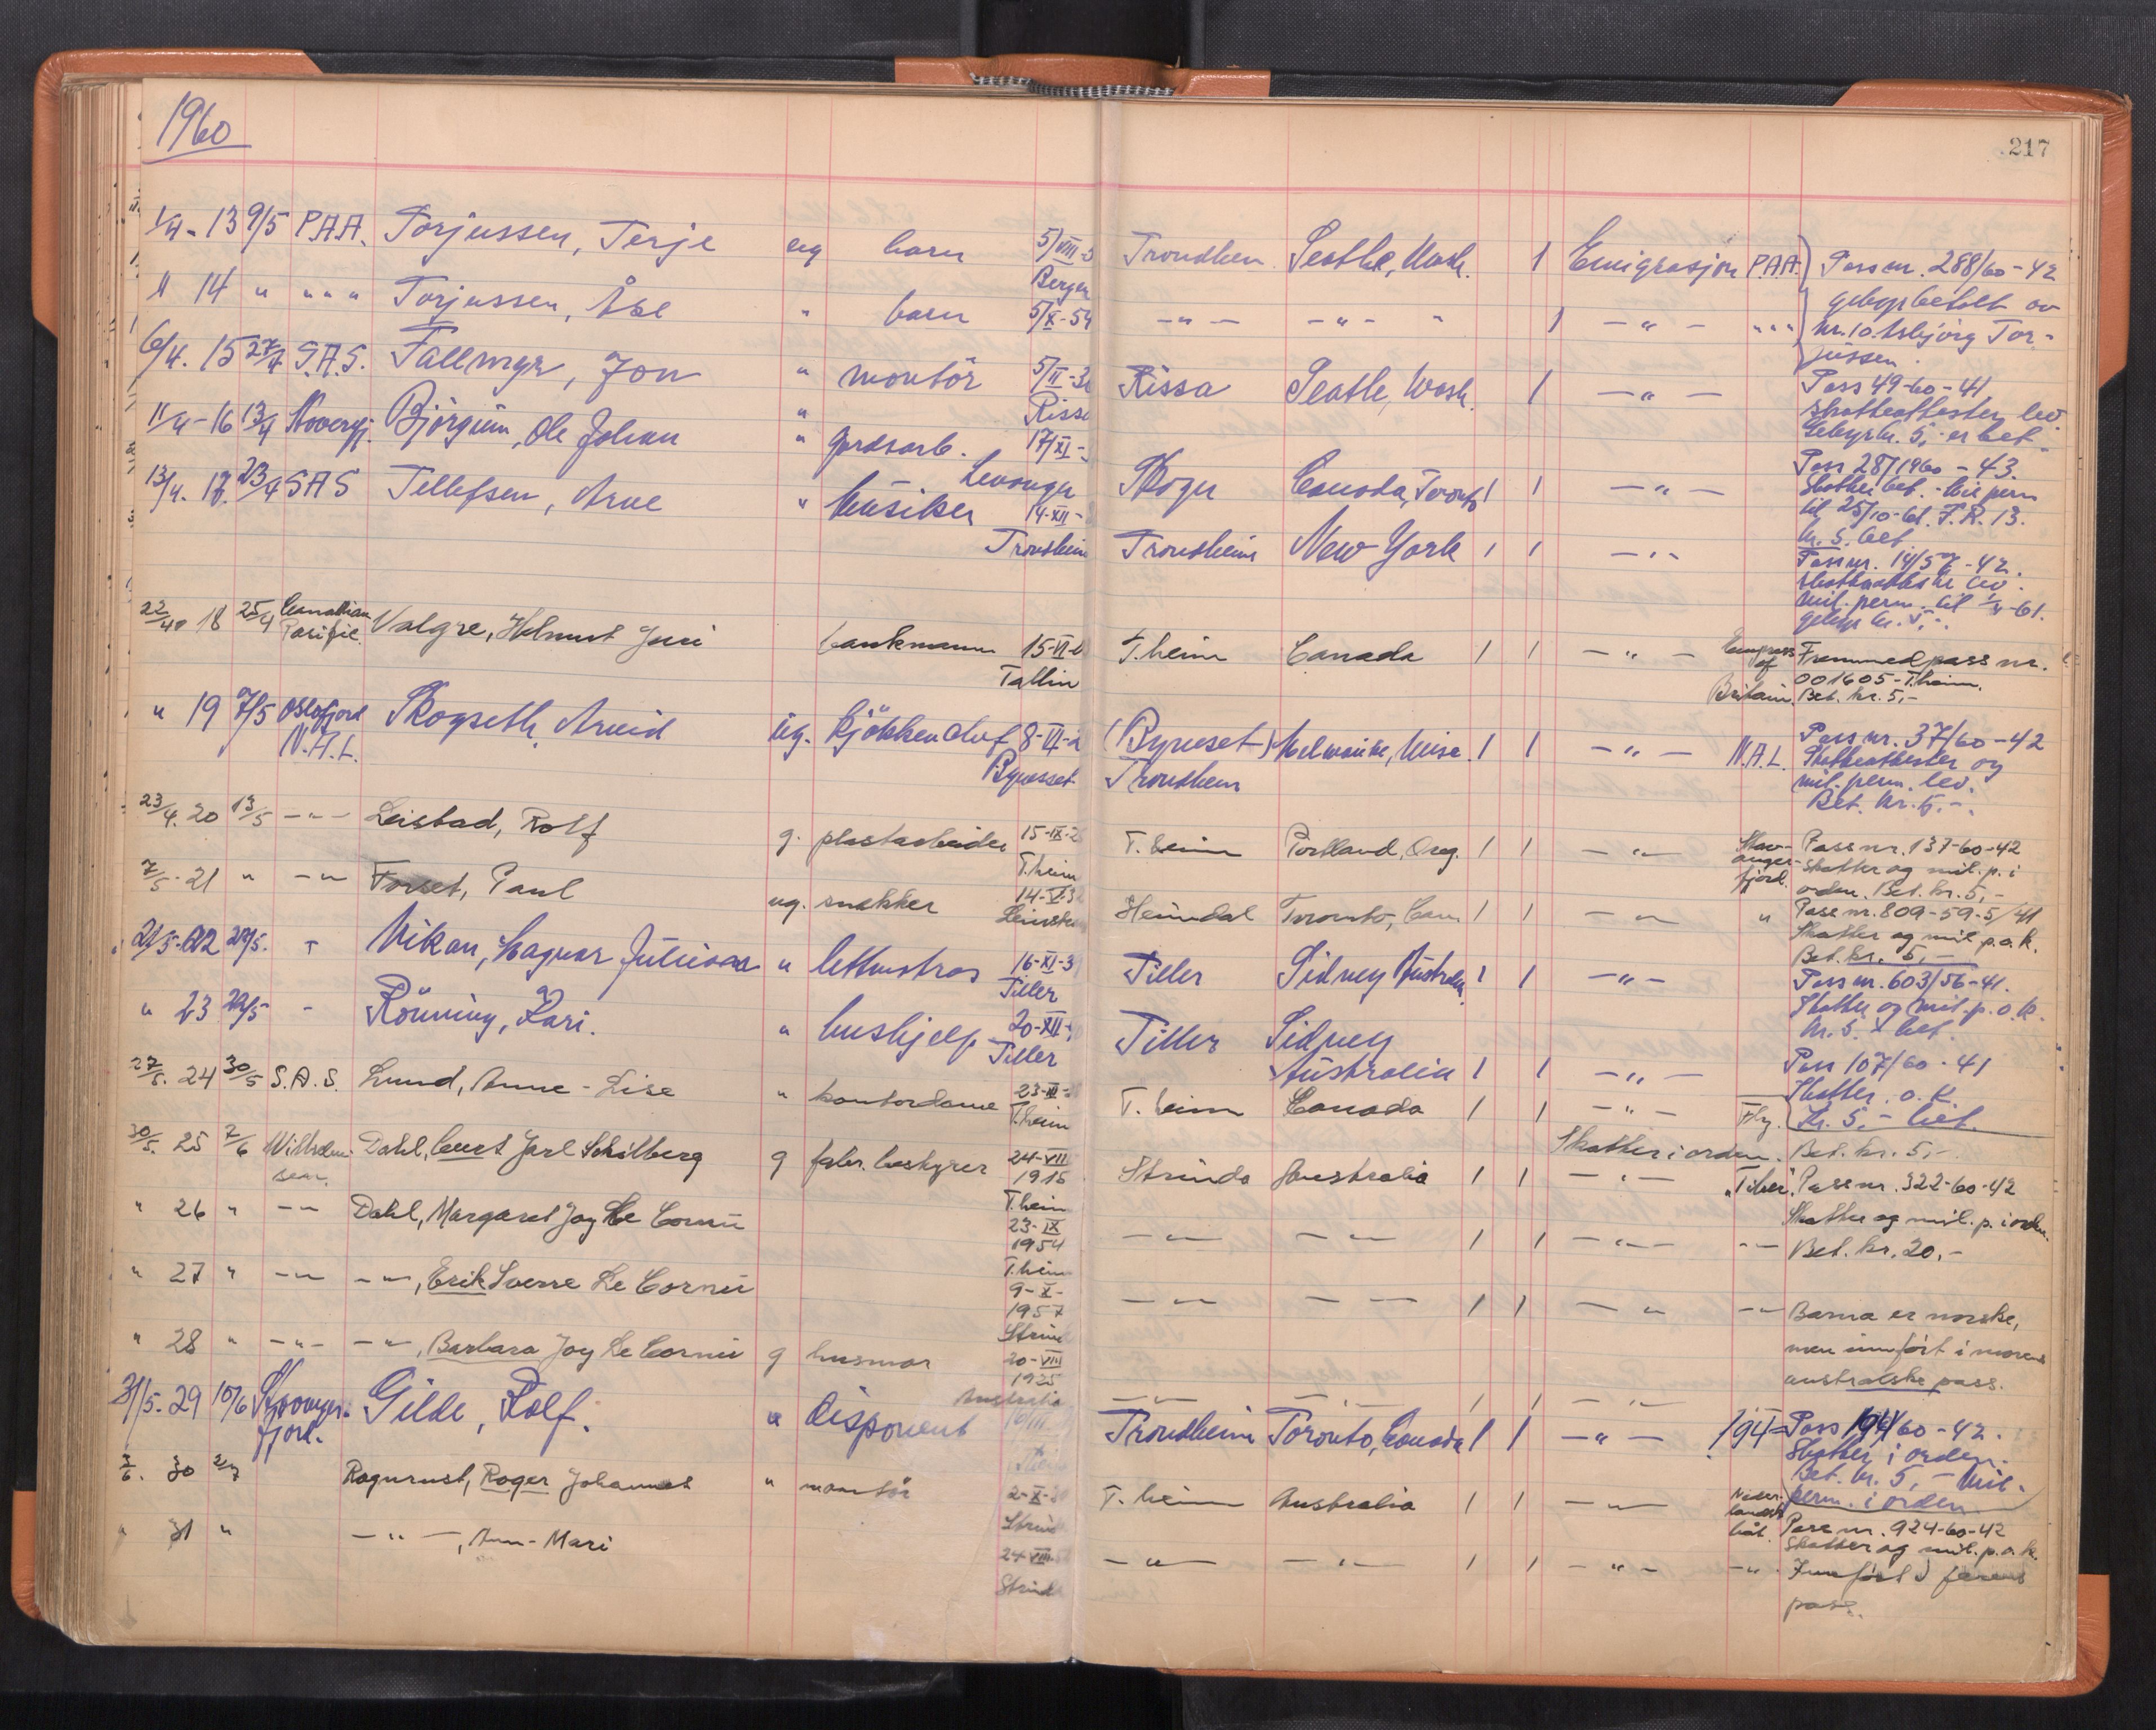 1960
217
1/4 - 13 9/5 P.A.A. Torjussen, Terje ug barn 5/VIII-5 Trondheim Seattle, Wash. 1 Emigrasjon P.A.A. Pass nr. 288/60-42
Bergen
" 14 " " " " Torjussen, Åse " barn 5/X-54 -"- -"- " 1 -"- """ gebyr betalt av
nr. 10 Asbjörg Tor-
jussen.
6/4. 15 27/4 S.A.S. Fallmyr, Jon " montör 5/II-3 Rissa Seatle, Wash. 1 -"- Pass 49-60-41
Rissa skatteattester lev.
Gebyr kr. 5,- er bet
11/4 - 16 13/4 Björgum, Ole Johan " gardsarb. 17/XI- Skogn Canada, Toronto 1 1 -"- Pass 287/1960-43.
Levanger Skatter bet. - Mil perm
til 25/10-61. F.R. 13.
kr. 5. bet
13/4. 17. 23/4 SAS Tellefsen, Arve " Musiker 14-XII- Trondheim New York 1 1 -"- Pass nr. 14/57-42.
Trondheim skatteattester lev.
Mil. perm. til 1/4-61.
gebyr kr. 5,-.
22/4 18 25/4 Canadian Pacific Valgre, Helmut Juri bankmann 15-VI- T.heim Canada 1 1 -"- Empress of Britain Fremmedpass nr.
Tallin 001605-T.heim.
Bet. kr. 5,-
" 19 7/5 Oslofjord N.A.L. Skogseth, Arvid ug. kjökken 8-VI-2 (Byneset) Trondheim Milwaukee, Wisc. 1 1 -"- N.A.L. Pass nr. 37/60-42
Bynesset Skatteattester og
mil. perm. lev.
Bet. kr. 5.-.
23/4. 20 13/5 -"- Leistad, Rolf g. plastarbeider 15-IX-2 T.heim Portland, Oreg. 1 1 -"- Stavangerfjord. Pass nr. 137-60-42
T.heim skatter og mil. p. i
orden. Bet. kr. 5,-
7/5. 21 " -"- Forset, Paul ug. snekker 14-V-32 Heimdal Toronto, Can. 1 1 -"- " Pass nr. 809-59-5/41
Skatter og mil. p.o.k.
Bet. kr. 5,-
21/5. 22 29/5. Vikan, Magnar Julius " 16-XI-3 Tiller Sidney Australia 1 1 -"- Pass nr. 603/56-41.
Tiller Skatter og mil. p. o.k.
kr. 5. bet.
" 23 29/5 - Rönning, Kari. " hushjelp 20-XII- Tiller Sidney Australia 1 1 -"- Pass 107/60-41
Tiller Skatter. o.k.
Kr. 5,- bet.
27/5. 24 30/5 S.A.S. Lund, Anne-Lise " kontordame 23-III- T.heim Canada 1 1 -"- Fly.
T.heim Skatter i orden. Bet. kr. 5,-
30/5. 25 7/6 Wilhelmsen. Dahl, Curt Jarl Schilberg g fabr. bestyrer 24-VIII 1915 Strinda Australia 1 1 -"- "Tiber". Pass nr. 322-60-42
T.heim Skatter og mil. p. i orden.
" 26 " -"- Dahl, Margaret Joy Le Cornu 23-IX 1954 -"- -"- 1 1 -"- -"- Bet. kr. 20,-
T.heim
" 27 " -"- -"-, Erik Sverre Le Cornu 9-X- 1957 -"- -"- 1 1 -"- -"- Barna er norske,
men innfört i morens
australske pass.
" 28 " -"- -"-, Barbara Joy Le Cornu g husmor 20-VIII 1925 -"- -"- 1 1 -"-
Australia
31/5. 29 10/6 Stavangerfjord. Gilde, Rolf. " disponent 16/III Trondheim Toronto, Canada 1 1 -"- 194= Pass 194/60-42.
Skatter i orden.
Bet. kr. 5,- Mil.
perm. i orden
3/6. 30 2/7 Roger Johannes " montör 2-X-3 T.heim Australia 1 1 -"- Nederlandsk båt. Pass nr. 924-60-42
Skatter og mil. p. o.k.
" 31 " -"-, Ann-Mari 24-VIII- -"- -"- 1 1 -"- -"- Innfört i farens
pass.